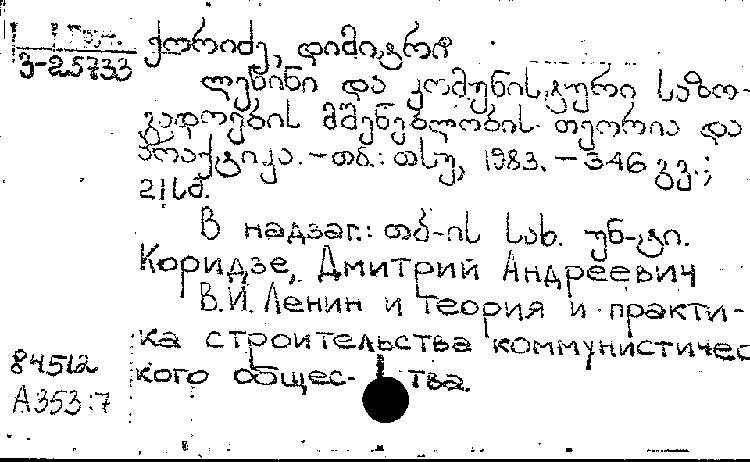 Груз.
3-25733
ქორიძე, დიმიტრი
ლენინი და კომუნისტური საზო-
გადოების მშენებლობის თეორია და
პრაქტიკა. – თბ.: თსუ, 1983. – 346 გვ.;
21 სმ.
В надзаг.: თბ-ის სახ. უნ-ტი.
Коридзе, Дмитрий Андреевич
В.И. Ленин и теория и практи-
ка строительства коммунистичес
кого общес- тва.
84512
А353:7